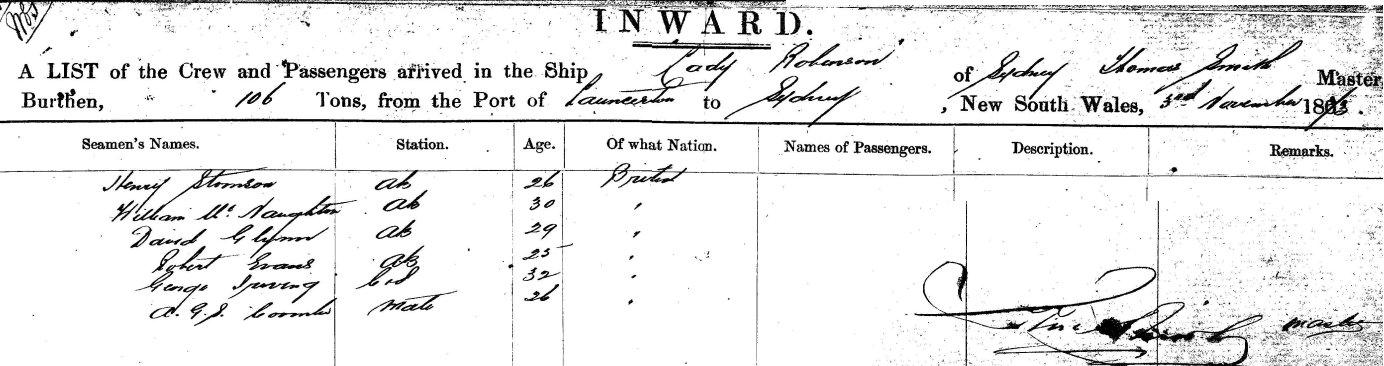 INWARD.
A LIST of the Crew and Passengers arrived in the Ship Lady Robinson of Sydney Thomas Smith Master
Burthen, 106 Tons, from the Port of Launceston to Sydney, New South Wales, 3rd November 18
Seamen's Names. Station. Age. Of what Nation. Names of Passengers. Description. Remarks.
Henry ab 26 British
William Mc Naughton ab 30 "
David Glynn ab 29 "
Robert Evans ab 25 "
George Irving 32 "
A. G. J. Mate 26 "
Smith master